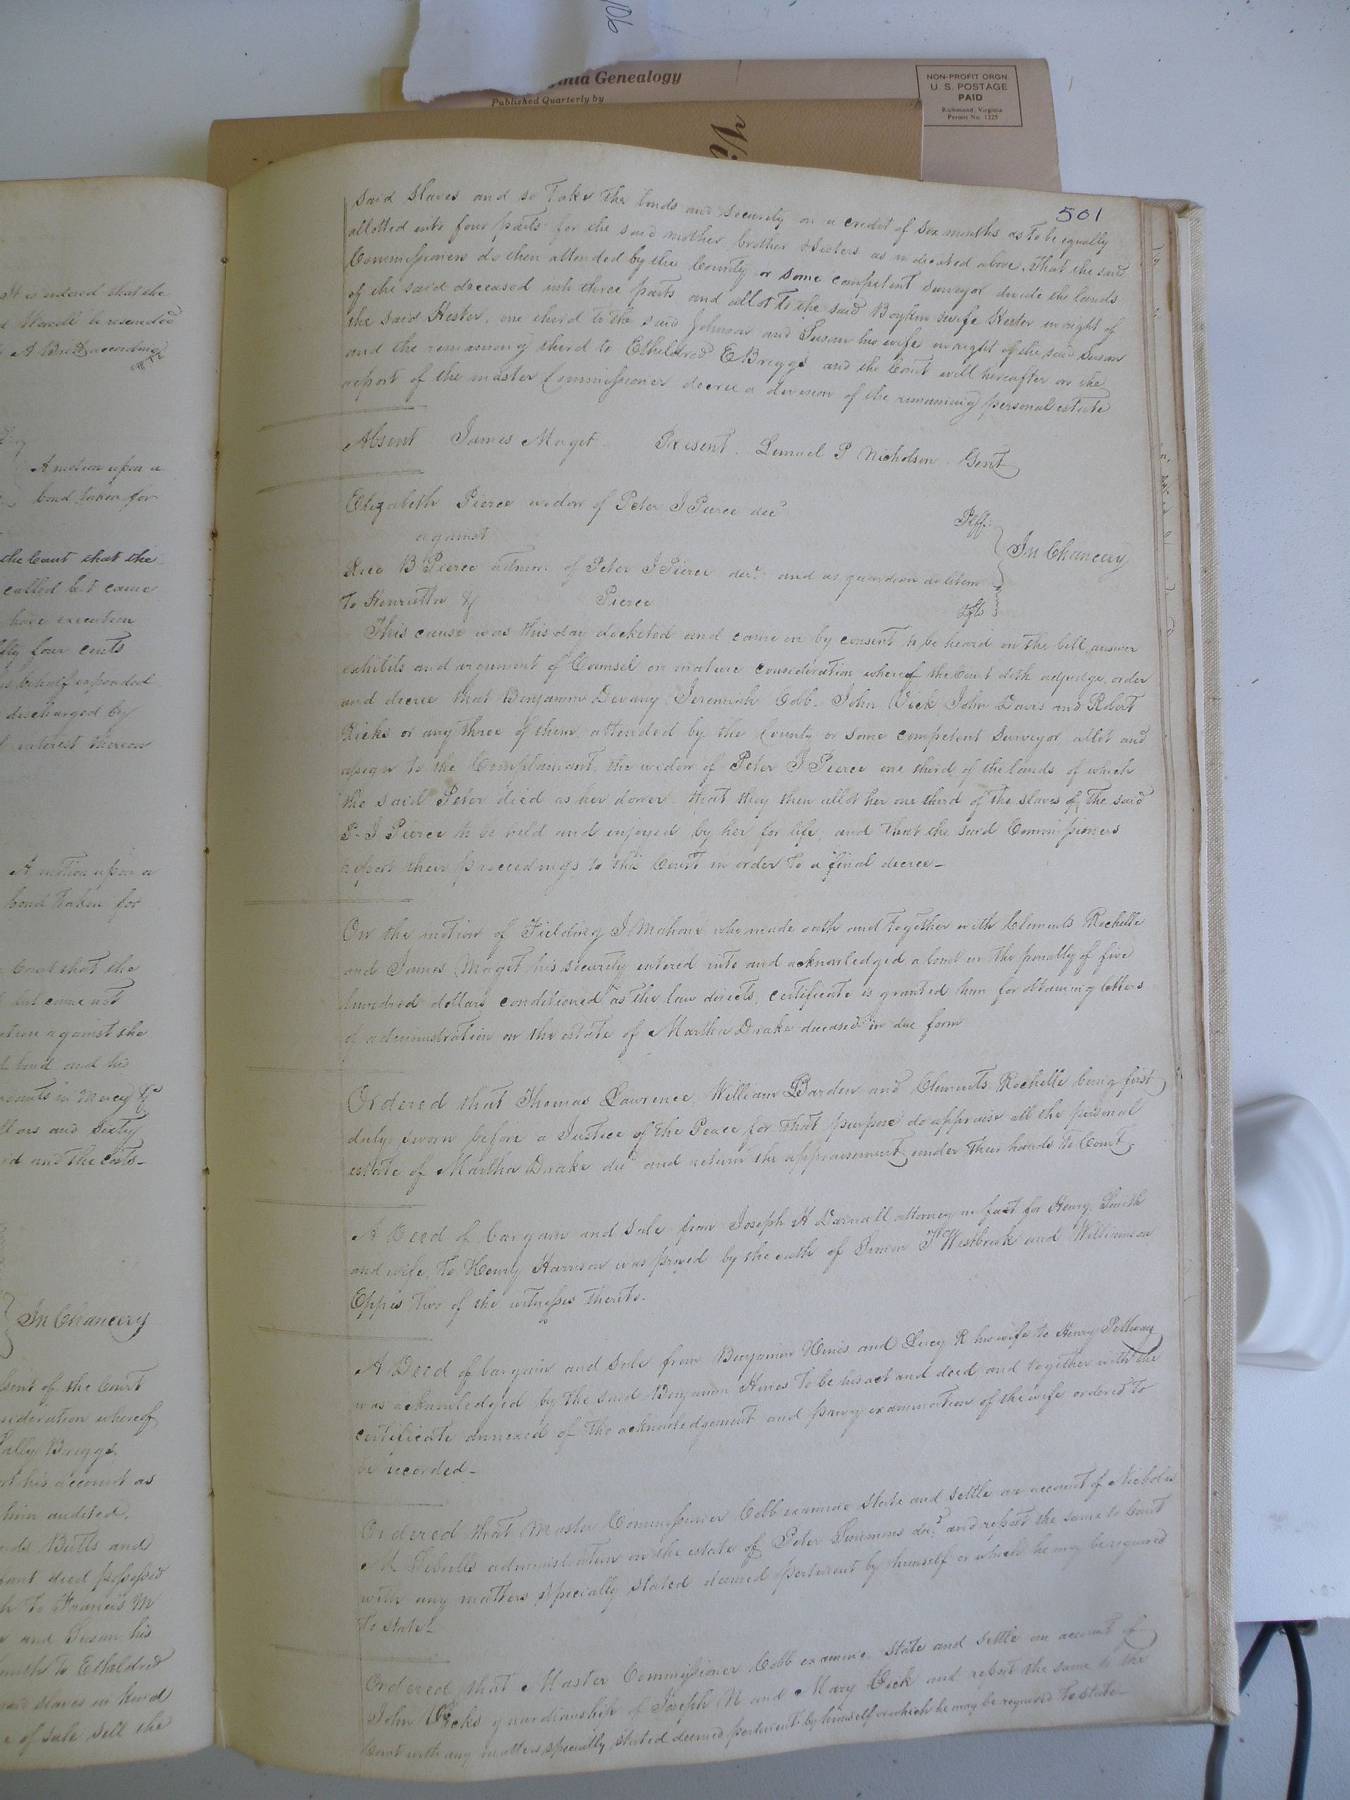 106
Virginia Genealogy
Published Quarterly by
NON-PROFIT ORGN
U. S. POSTAGE
PAID
Richmond, Virginia
Permit No. 1225
It is ordered that the
be rescinded
A motion upon a
bond taken for
the Court that the
called but came
have execution
fifty four cents
behalf expended
discharged by
interest thereon
A motion upon a
bond taken for
Court that the
but came not
against the
bond and his
in mercy &c
dollars and sixty
and the costs—
In Chancery
consent of the Court
consideration whereof
Sally Briggs
his account as
him audited,
Butts and
died possessed
to Francis M
and Susan his
to Etheldred
slaves in kind
of sale sell the
501
said slaves and so take the bonds and security on a credit of six months as to be equally
allotted into four parts for the said mother brother & sisters as indicated above. That the said
Commissioners do then attended by the County or some competent surveyor divide the lands
of the said deceased into three parts and allot to the said Boykin & wife Hester in right of
the said Hester, one third to the said Johnson and Susan his wife in right of the said Susan
and the remaining third to Etheldred E Briggs and the Court will hereafter on the
report of the master Commissioner decree a division of the remaining personal estate
Absent James Maget Present. Lemuel P Nicholson Gent
Elizabeth Pierce widow of Peter J Pierce decd Plff.
against
In Chancery
Rice B Pierce admor. of Peter J Pierce decd. and as guardian ad litem
to Henrietta & Pierce Dfts
This cause was this day docketed and came on by consent to be heard on the bill, answer
exhibits and argument of Counsel on mature consideration whereof the Court doth adjudge, order
and decree that Benjamin Devany Jeremiah Cobb, John Vick John Davis and Robert
Ricks or any three of them attended by the County or some competent surveyor allot and
assign to the Complainant, the widow of Peter J Pierce one third of the lands of which
the said Peter died as her dower that they then allot her one third of the slaves of the said
P. J Pierce to be held and enjoyed by her for life, and that the said Commissioners
report their proceedings to this Court in order to a final decree—
On the motion of Fielding J Mahone who made oath and together with Clements Rochelle
and James Maget his security entered into and acknowledged a bond in the penalty of five
hundred dollars conditioned as the law directs, certificate is granted him for obtaining letters
of administration on the estate of Martha Drake deceased in due form
Ordered that Thomas Lawrence, William Barden and Clements Rochelle being first
duly sworn before a Justice of the Peace for that purpose do appraise all the personal
estate of Martha Drake decd and return the appraisement under their hands to Court
A Deed of bargain and sale from Joseph H Darnall attorney in fact for Henry Smith
and wife to Henry Harrison was proved by the oath of T Westbrook and Williamson
Eppes two of the witnesses thereto.
A Deed of bargain and sale from Benjamin Hines and Lucy R his wife to Henry Pettway
was acknowledged by the said Benjamin Hines to be his act and deed and together with the
certificate annexed of the acknowledgement and privy examination of the wife ordered to
be recorded—
Ordered that Master Commissioner Cobb examine state and settle an account of Nicholas
M Sebrells administration on the estate of Peter Simmons decd. and report the same to Court
with any matters specially stated deemed pertinent by himself or which he may be required
to state—
Ordered, that Master Commissioner Cobb examine state and settle an account of
John Vicks guardianship of Joseph N and Mary Vick and report the same to the
Court with any matters specially stated deemed pertinent by himself or which he may be required to state—